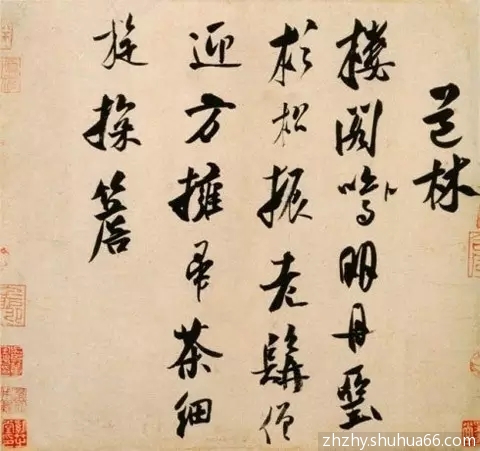 道林
樓閣鳴明丹堊
杉松振老髯僧
迎方擁帚茶細
旋探簷
zhzhy.shuhua66.com